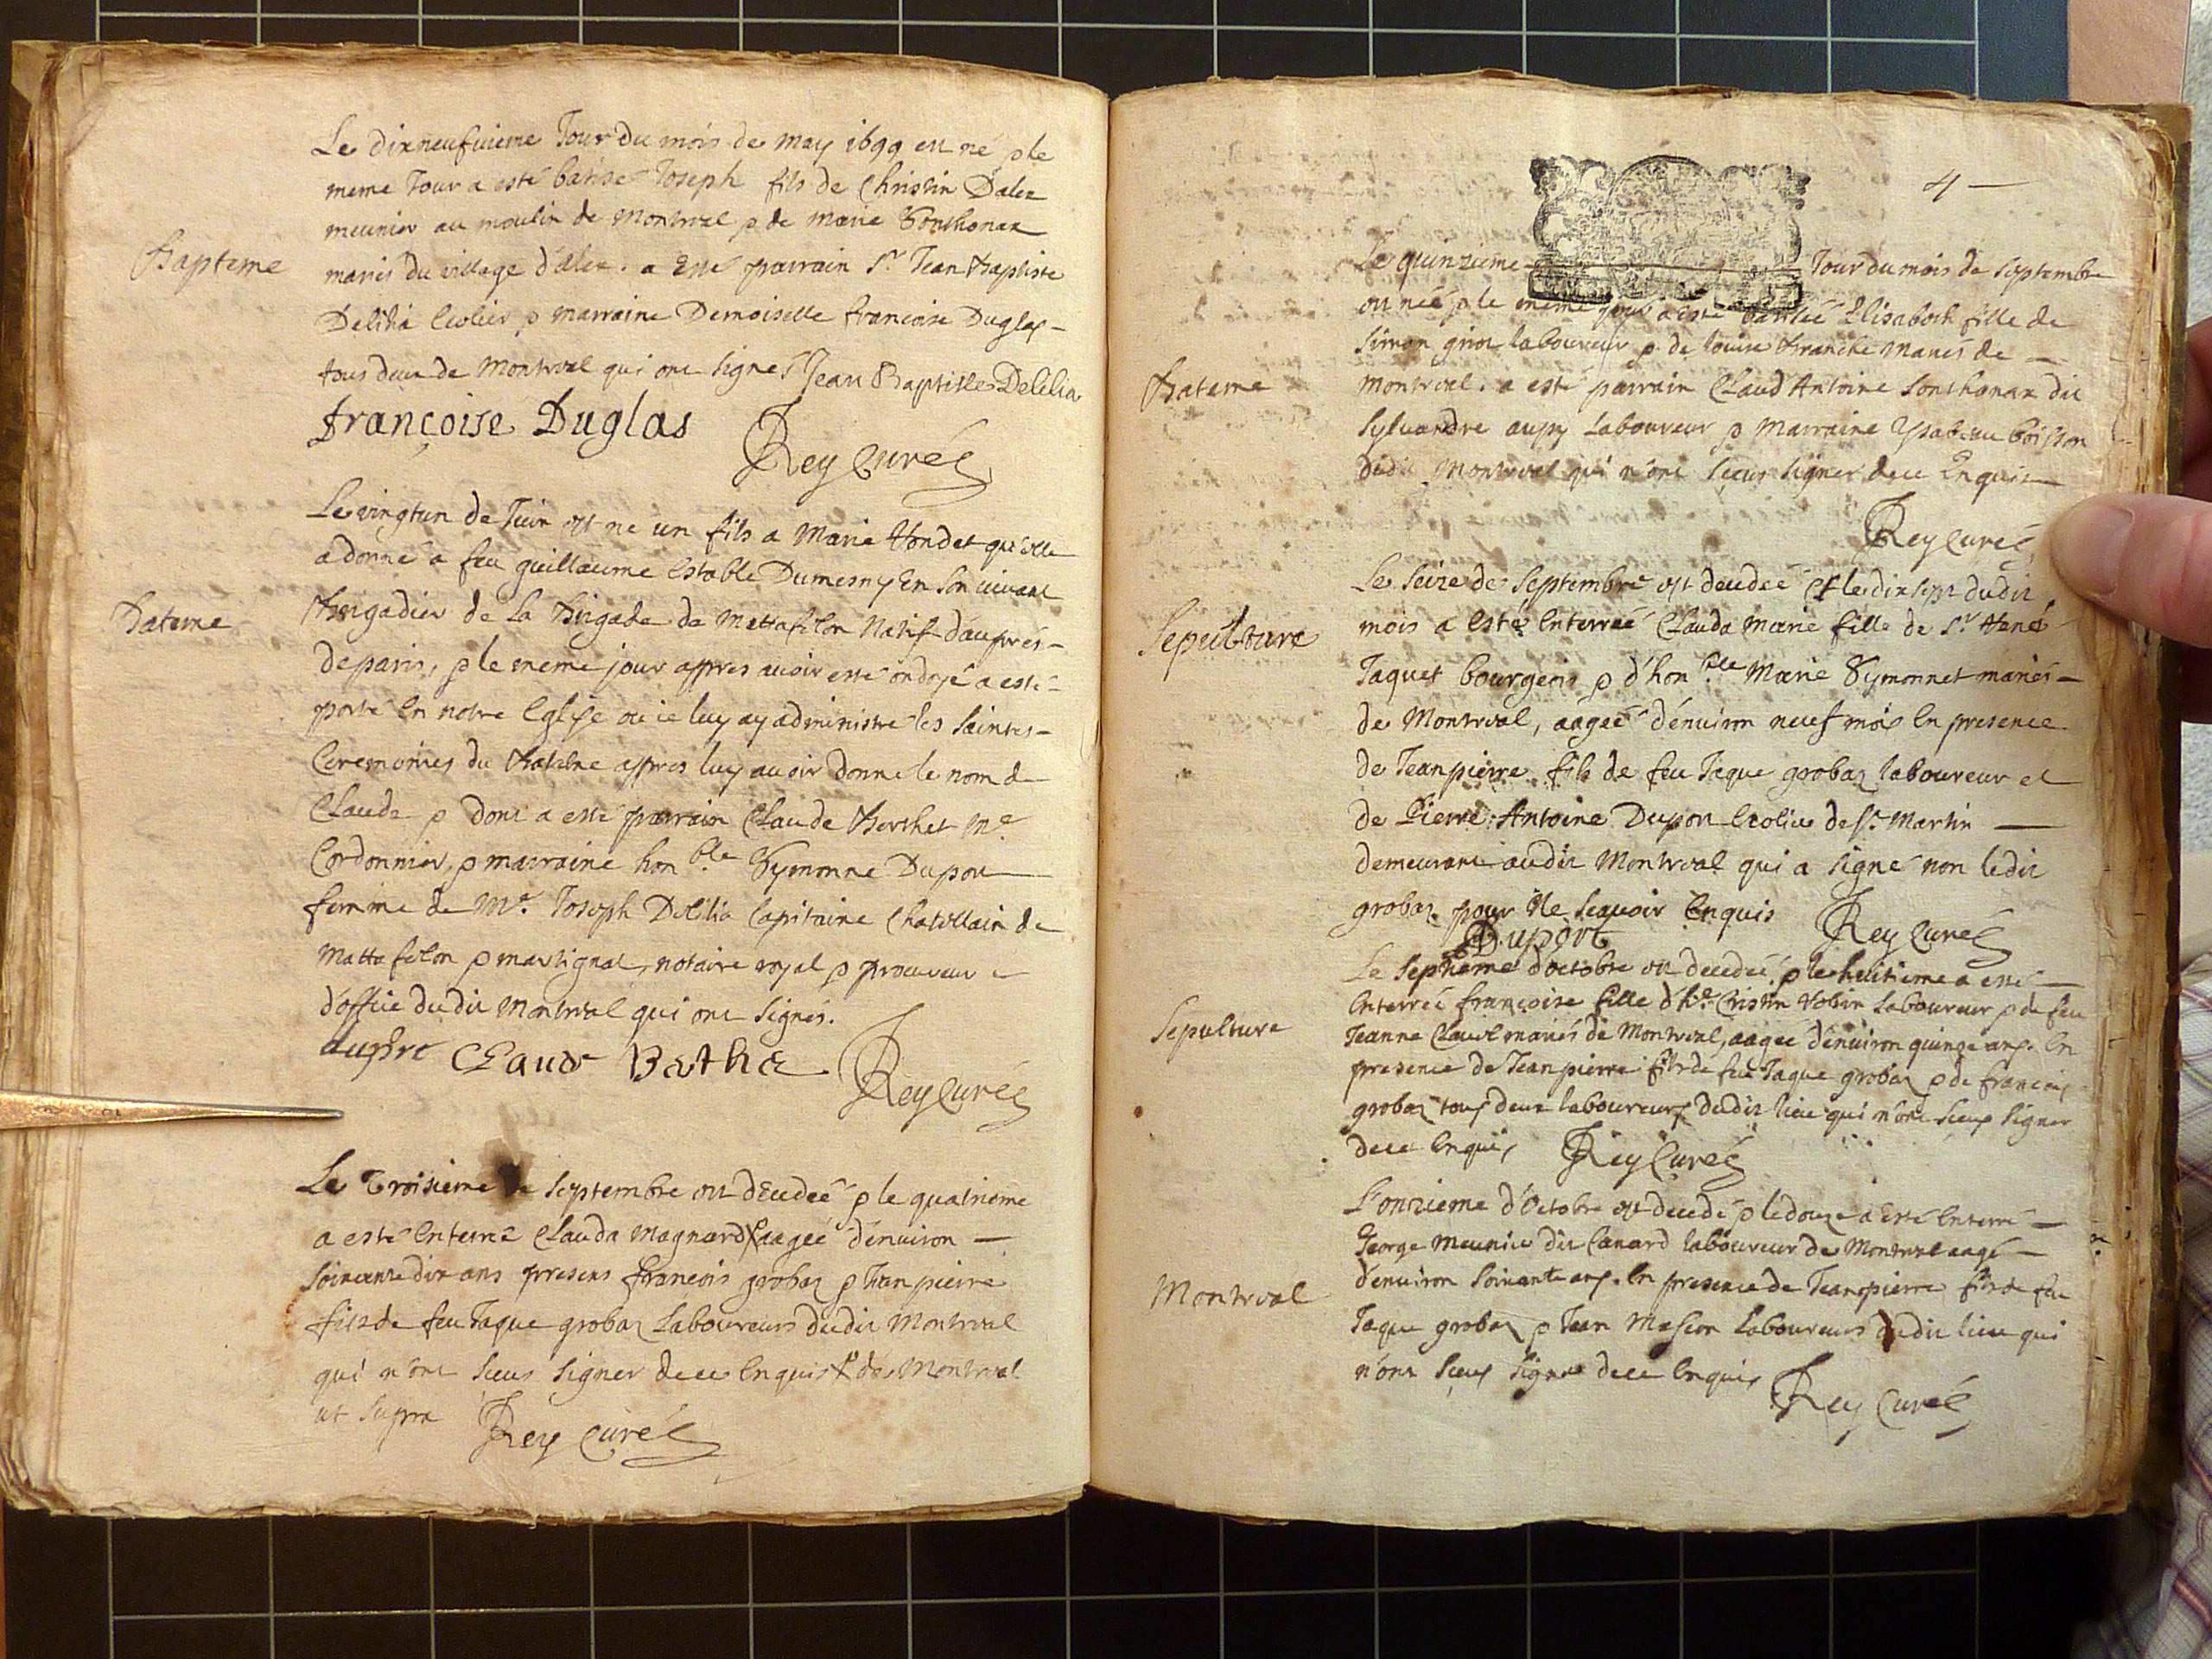 Le dixneufvieme Jour du mois de may 1699 est né & le
meme Jour a esté batisé Joseph fils de Christin Dalex
meunier au moulin de Montreal & de Marie Sonthonax
Bapteme
mariés du village d'alex. a Esté parrain Sr. Jean Baptiste
Delilia Ecolier & marraine Demoiselle francoise Duglas
tous deux de Montreal qui ont signes Jean Baptiste Delilia
françoise Duglas
Rey Curé
Le vingtun de Juin est ne un fils a Marie Bondet qu'elle
a donné a feu guillaume Estable Dumesny En son vivant
Bateme
Brigadier de la Brigade de Mattafelon Natif d'aupres
de paris, & le meme jour appres avoir esté ondoyé a esté
porté En notre Eglise ou ie luy ay administré les saintes
Ceremonies du Bateme appres luy avoir donné le nom de
Claude & dont a esté parrain Claude Berthet Me
Cordonnier, & marraine hon.ble Symonne Dupont
femme de Mr. Joseph Delilia Capitaine Chatellain de
Mattafelon & martignat, notaire royal & procureur
d'office dudit Montreal qui ont signés.
Claude Berthe
Rey Curé
Le Troisieme de septembre est decedeé & le quatrieme
a esté Enterré Clauda Magnard aageé d'environ
soixante dix ans presens francois grobas & Jean pierre
fils de feu Jaque grobas Laboureurs dudit Montreal
qui n'ont sceus signer de ce Enquis de Montreal
ut supra
Rey Curé
4
Le quinzieme Jour du mois de septembre
est neé & le meme jour a esté batiseé Elisabeth fille de
Simon laboureur & de louise Branche Mariés de
Bateme
Montreal. a esté parrain Claud Antoine Sonthonax dit
Sylvandre aussy Laboureur & Marraine Ysabeau
dudit Montreal qui n'ont sceus signer de ce Enquis
Rey Curé
Le seize de septembre est decedeé & le dix sept dudit
Sepulture
mois a Esté Enterreé Clauda Marie fille de Sr René
Jaquet bourgeois & d'hon.ble Marie Symonnet mariés
de Montreal, aageé d'environ neuf mois En presence
de Jeanpierre fils de feu Jaque grobas laboureur et
de Pierre Antoine Dupont Ecolier de St. Martin
demeurant audit Montreal qui a signé non ledit
grobas pour ne scavoir Enquis
Rey Curé
Duport
Le septieme d'octobre est decedeé & le huitieme a esté
Enterreé francoise fille d'h.e Cristin Robin Laboureur & de feu
Sepulture
Jeanne mariés de Montreal, aageé d'environ quinze ans. En
presence de Jeanpierre fils de feu Jaque grobas & de francois
grobas tous deux laboureurs dudit lieu qui n'ont sceus signer
de ce Enquis
Rey Curé
L'onzieme d'octobre est decedé & le douze a Esté Enterré
George Meunier dit Canard laboureur de Montreal aagé
Montreal
d'environ soixante ans. En presence de Jeanpierre fils de feu
Jaque grobas & Jean Masson Laboureurs dudit lieu qui
n'ont sceus signer de ce Enquis
Rey Curé